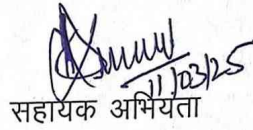 11/03/25
सहायक अभियंता